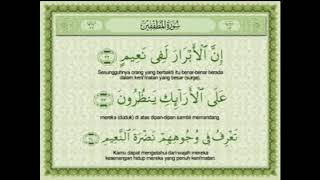 سُورَةُ المُطَفِّفِين
إِنَّ ٱلْأَبْرَارَ لَفِى نَعِيمٍ
Sesungguhnya orang yang berbakti itu benar-benar berada
dalam keni'matan yang besar (surga).
عَلَى ٱلْأَرَآئِكِ يَنظُرُونَ
mereka (duduk) di atas dipan-dipan sambil memandang.
تَعْرِفُ فِى وُجُوهِهِمْ نَضْرَةَ ٱلنَّعِيمِ
Kamu dapat mengetahui dari wajah mereka
kesenangan hidup mereka yang penuh keni'matan.